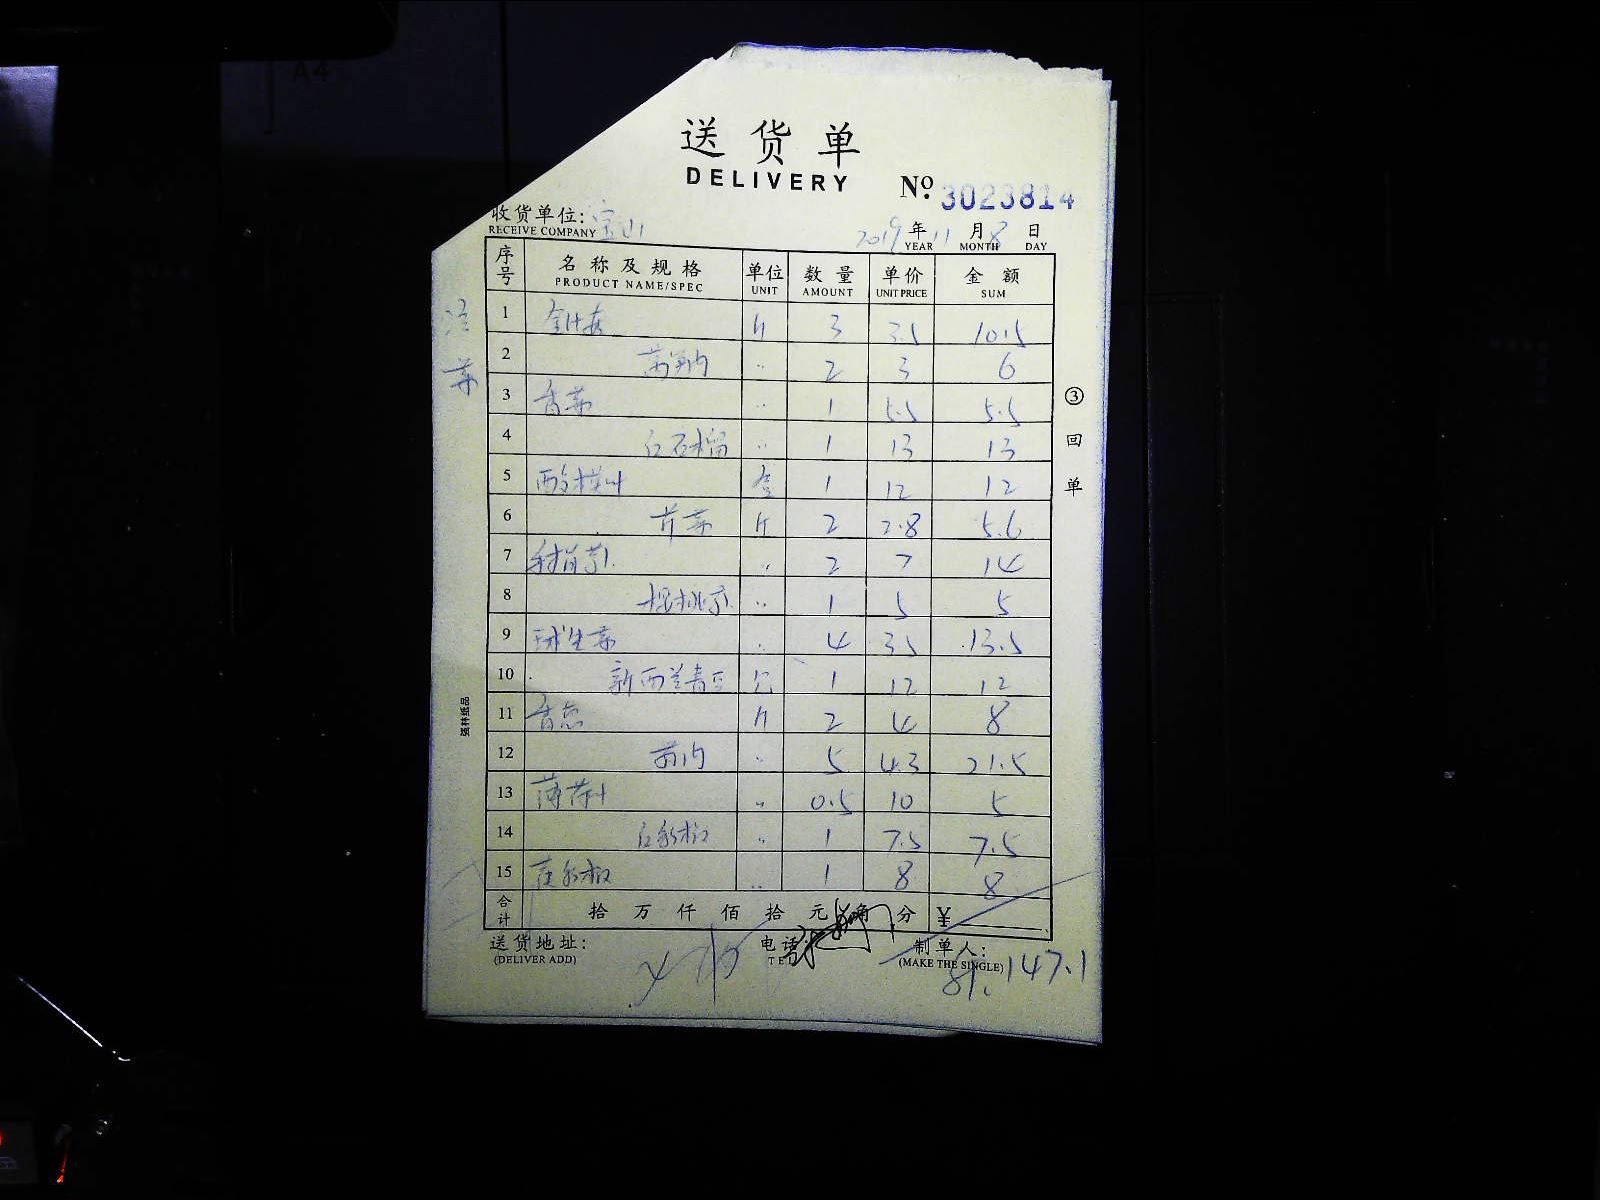 A4
送货单
DELIVERY
No. 3023814
收货单位: 宝山
RECEIVE COMPANY
2019 年 11 月 8 日
YEAR MONTH DAY
序号 名称及规格 单位 数量 单价 金额
PRODUCT NAME/SPEC UNIT AMOUNT UNIT PRICE SUM
1 金针菇 斤 3 3.5 10.5
2 〃 2 3 6
3 香菜 〃 1 5.5 5.5
4 〃 1 13 13
5 酸模叶 盒 1 12 12
6 芹菜 斤 2 2.8 5.6
7 〃 2 7 14
8 〃 1 5 5
9 球生菜 〃 4 3.5 13.5
10 新西兰青豆 1 12 12
11 香葱 斤 2 4 8
12 〃 5 4.3 21.5
13 薄荷叶 〃 0.5 10 5
14 红彩椒 〃 1 7.5 7.5
15 黄彩椒 〃 1 8 8
合计 拾 万 仟 佰 拾 元 角 分 ¥
送货地址: 电话: 制单人:
(DELIVER ADD) TEL (MAKE THE SINGLE)
147.1
③回单
强林纸品